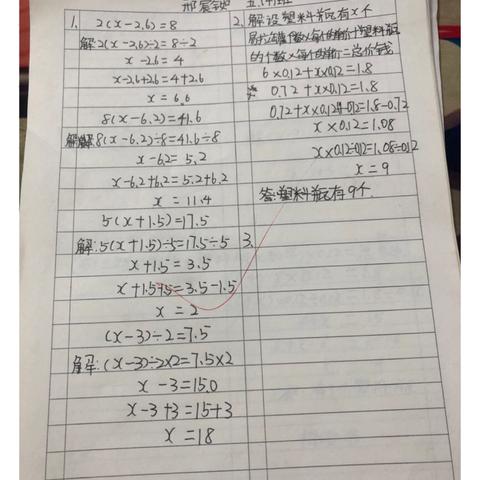 1. 2(x-2.6)=8
解2(x-2.6)÷2=8÷2
x-2.6=4
x-2.6+2.6=4+2.6
x=6.6
8(x-6.2)=41.6
解8(x-6.2)÷8=41.6÷8
x-6.2=5.2
x-6.2+6.2=5.2+6.2
x=11.4
5(x+1.5)=17.5
解:5(x+1.5)÷5=17.5÷5
x+1.5=3.5
x=2
(x-3)÷2=7.5
解:(x-3)÷2×2=7.5×2
x-3=15.0
x-3+3=15+3
x=18
2. 解设塑料瓶有x个
的个数×每个的单价=总价钱
6×0.12+x×0.12=1.8
0.72+x×0.12=1.8
0.72+x×0.12-0.72=1.8-0.72
x×0.12=1.08
x×0.12÷0.12=1.08÷0.12
x=9
答:塑料瓶有9个.
3.